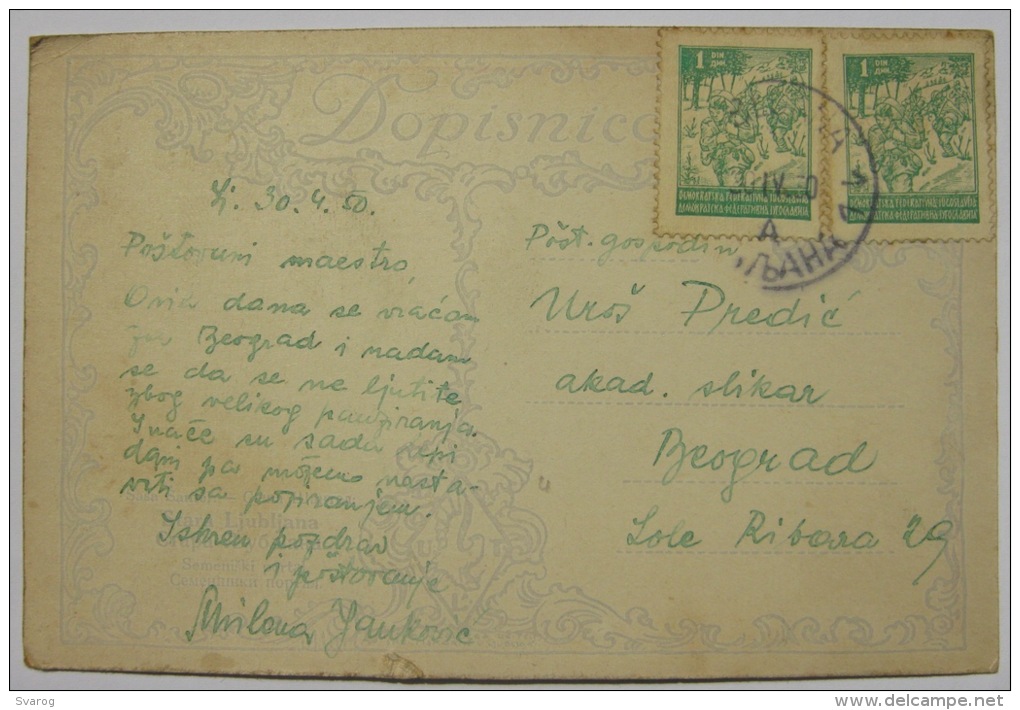 Dopisnica
1 DIN
ДИН
DEMOKRATSKA FEDERATIVNA JUGOSLAVIJA
ДЕМОКРАТСКА ФЕДЕРАТИВНА ЈУГОСЛАВИЈА
1 DIN
ДИН
DEMOKRATSKA FEDERATIVNA JUGOSLAVIJA
ДЕМОКРАТСКА ФЕДЕРАТИВНА ЈУГОСЛАВИЈА
Lj. 30.4.50.
Poštovani maestro,
Ovih dana se vraćam
za Beograd i nadam
se da se ne ljutite
zbog velikog pauziranja.
Inače su sada lepi
dani pa možemo nasta-
viti sa poziranjem.
Iskren pozdrav
i poštovanje
Milena Janković
Stara Ljubljana
Semeniški portal
Семенишки портал
Pošt. gospodin
Uroš Predić
akad. slikar
Beograd
Lole Ribara 29
Svarog
www.delcampe.net